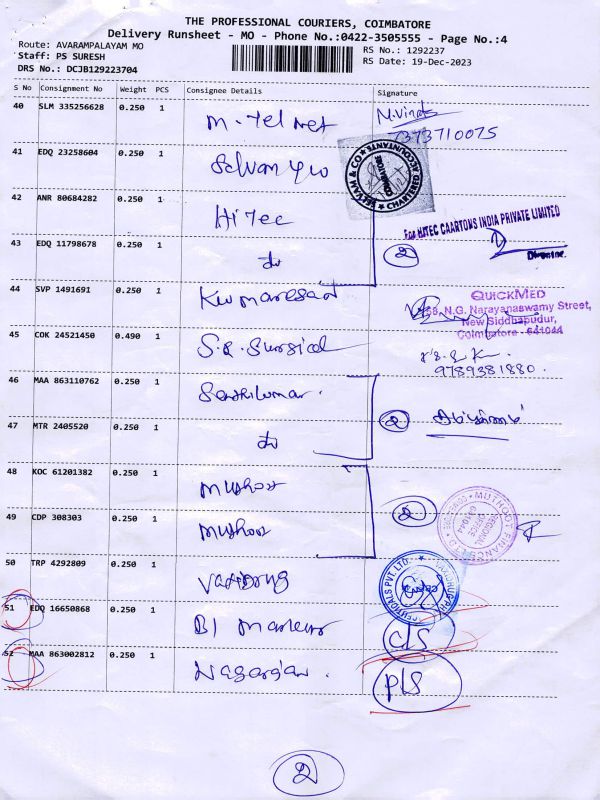 THE PROFESSIONAL COURIERS, COIMBATORE
Delivery Runsheet - MO - Phone No.:0422-3505555 - Page No.:4
Route: AVARAMPALAYAM MO
Staff: PS SURESH
DRS No.: DCJB129223704
RS No.: 1292237
RS Date: 19-Dec-2023
S No Consignment No Weight PCS Consignee Details Signature
40 SLM 335256628 0.250 1 M. Tel Net
7373710075
41 EDQ 23258604 0.250 1 Selvam
SELVAM & CO CHARTERED ACCOUNTANTS COIMBATORE
42 ANR 80684282 0.250 1 Hi Tec
For HITEC CAARTONS INDIA PRIVATE LIMITED
Director.
43 EDQ 11798678 0.250 1 do 2
44 SVP 1491691 0.250 1 Kumaresan
QUICKMED
N.G. Narayanaswamy Street,
New Siddhapudur,
Coimbatore - 641044
45 COK 24521450 0.490 1 S.R. Surgical
9789381880.
46 MAA 863110762 0.250 1 Senthilkumar. 2
47 MTR 2405520 0.250 1 do
48 KOC 61201382 0.250 1 Muthoot 2
MUTHOOT FINANCE LTD
49 CDP 308303 0.250 1 Muthoot
50 TRP 4292809 0.250 1
51 EDQ 16650868 0.250 1 C/S
52 MAA 863002812 0.250 1 Nagarajan. P/S
2